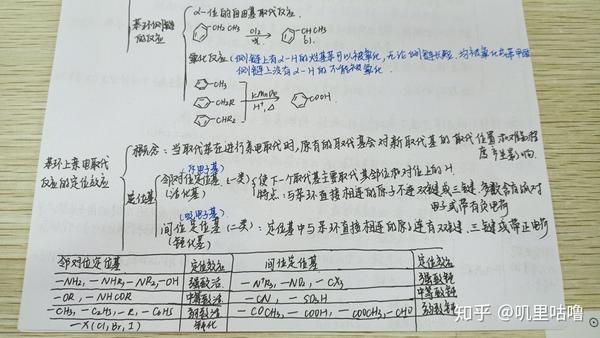 苯环侧链的反应
α-位的自由基取代反应.
CH2CH3
Cl2
光
CHCH3
Cl.
氧化反应(侧链上有α-H的烃基苯可以被氧化,无论侧链长短,均被氧化为苯甲酸
侧链上没有α-H的不能被氧化.
-CH3
-CH2R
-CHR2
KMnO4
H+,△
-COOH
苯环上亲电取代反应的定位效应
概念:当取代苯在进行亲电取代时,原有的取代基会对新取代基的取代位置和难易程度产生影响.
定位基
(供电子基)
邻对位定位基(一类)
(活化)
使下一个取代基主要取代其邻位和对位上的H.
特点:与苯环直接相连的原子不连双键或三键,多数含有孤对电子或带有负电荷
(吸电子基)
间位定位基(二类):定位基中与苯环直接相连的原子连有双键、三键或带正电荷
(钝化基)
邻对位定位基 定位效应 间位定位基 定位效应
-NH2, -NHR, -NR2, -OH 强致活 -N+R3, -NO2, -CX3 强致钝
-OR, -NHCOR 中等致活 -CN, -SO3H 中等致钝
-CH3, -C2H5, -R, -C6H5 弱致活 -COCH3, -COOH, -COOCH3, -CHO 弱致钝
-X(Cl, Br, I) 钝化
知乎 @叽里咕噜